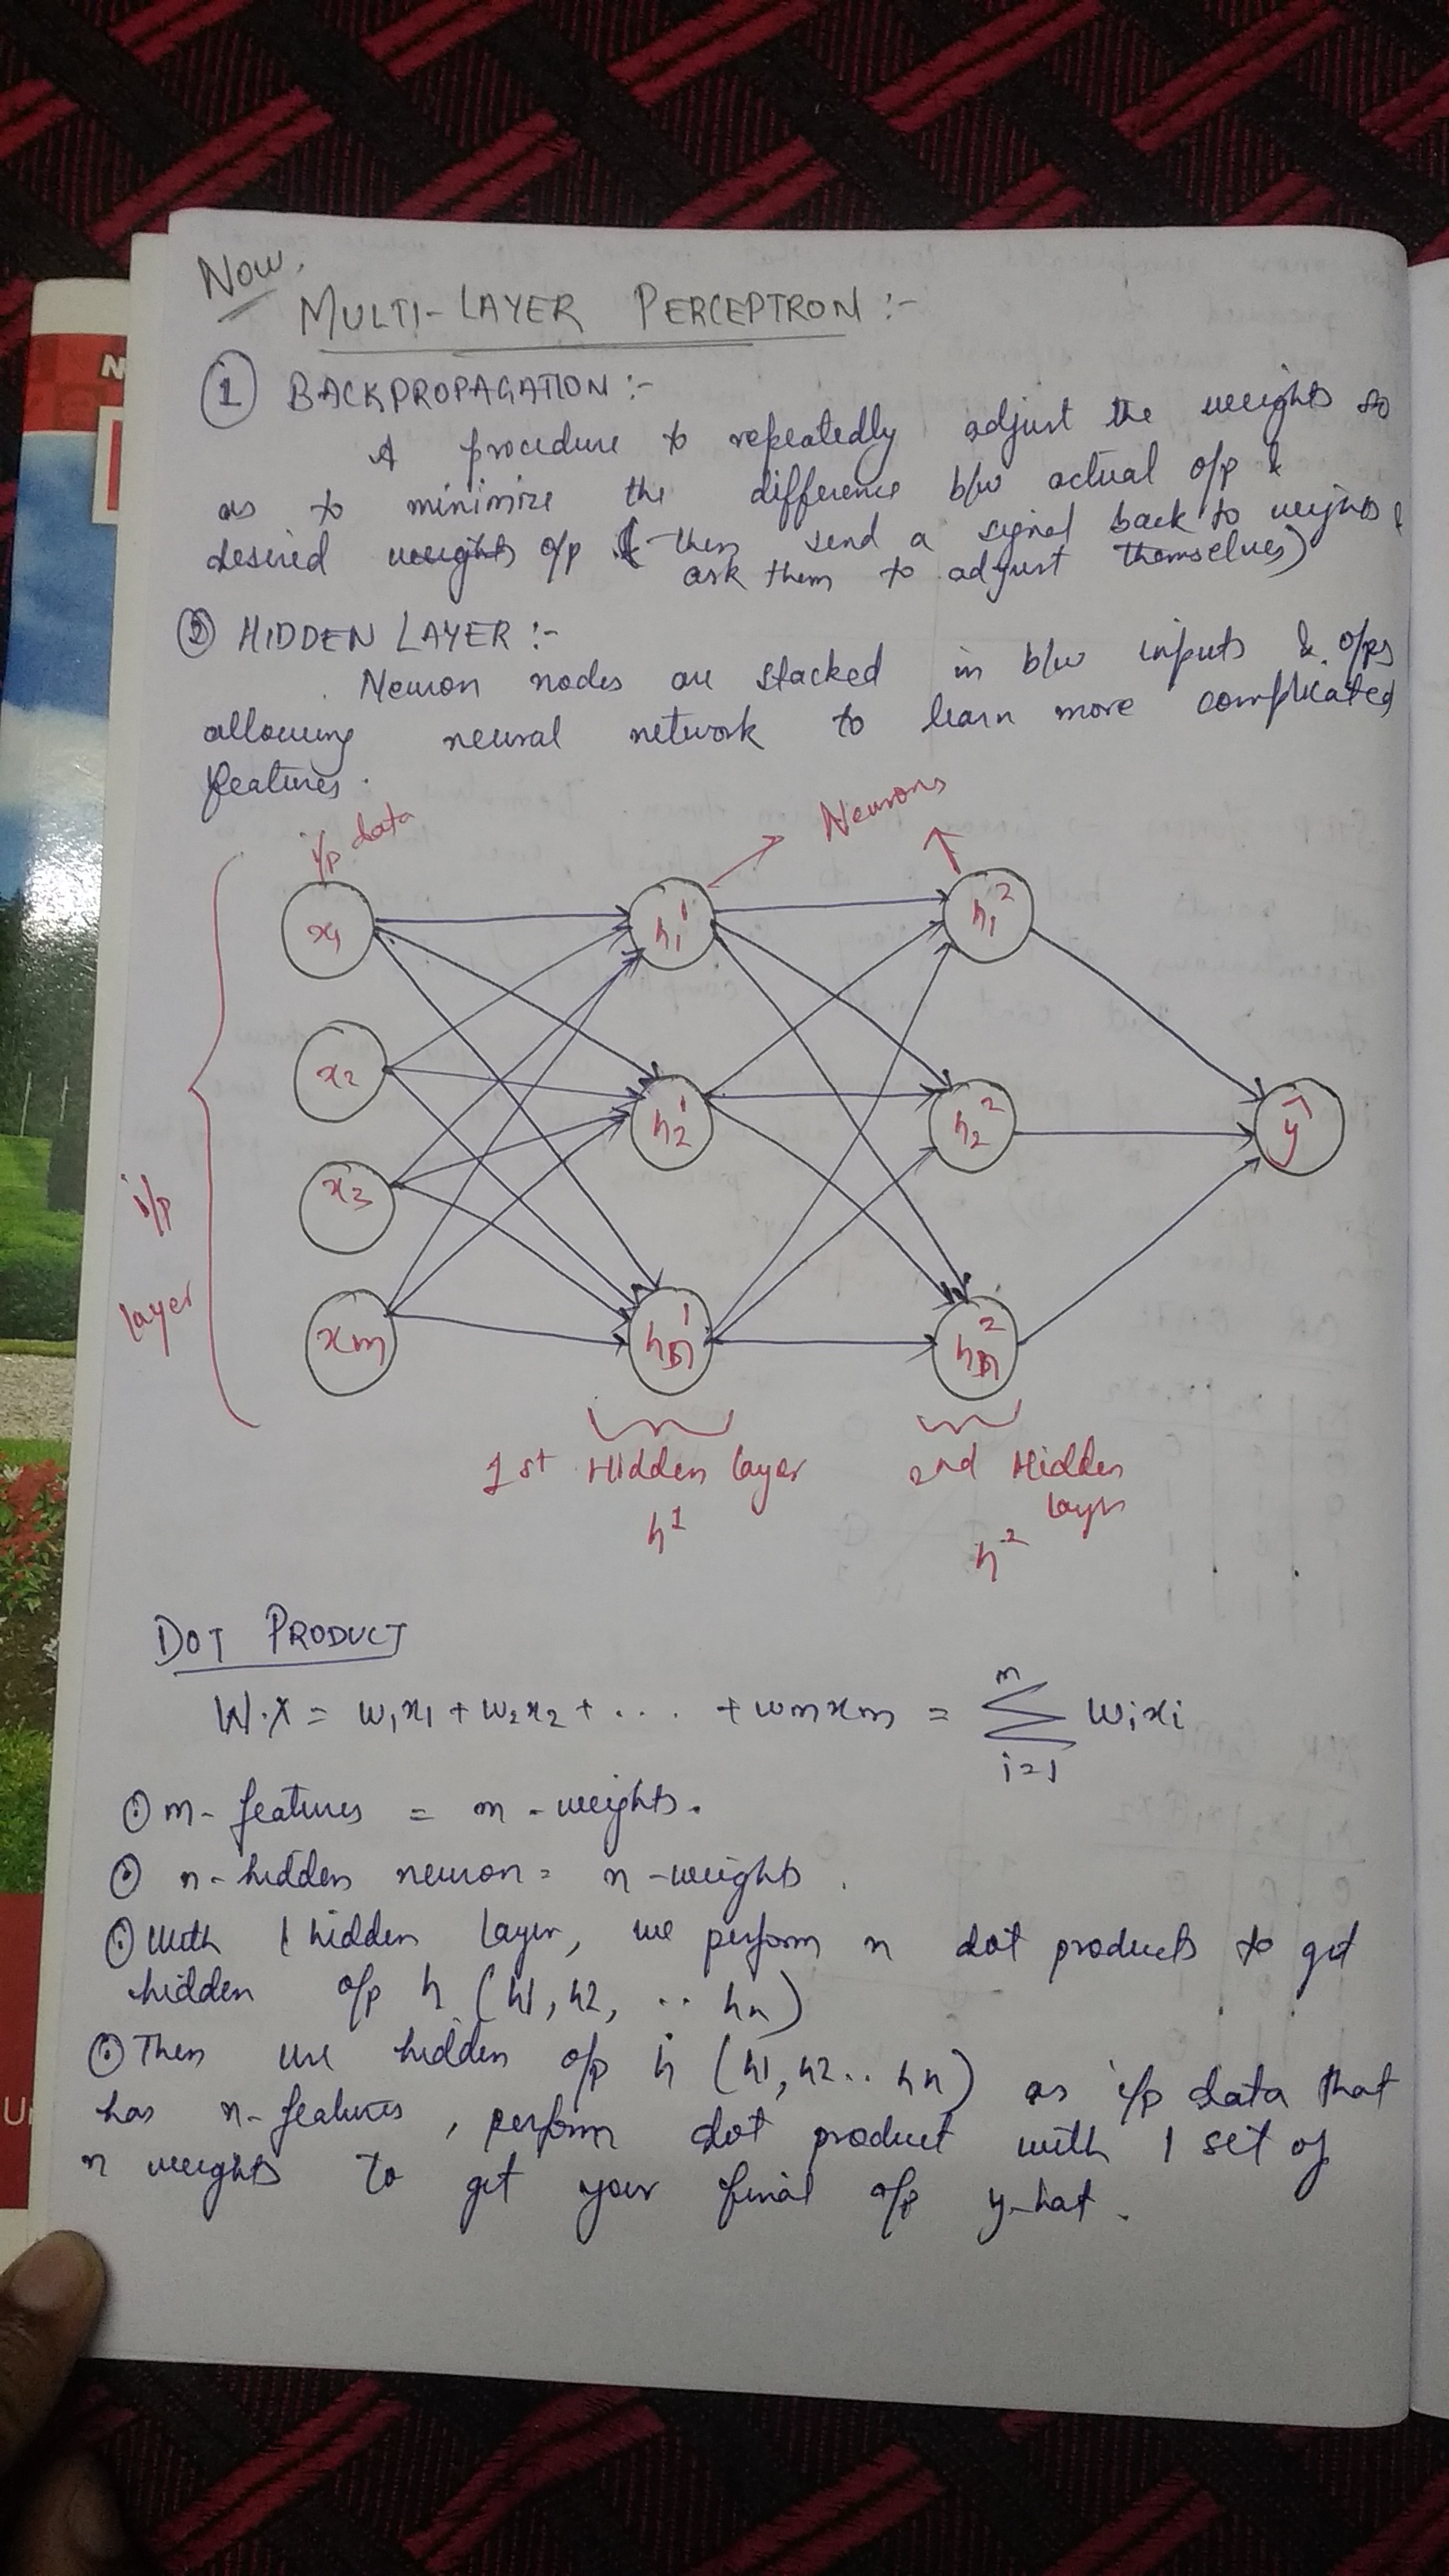 Now,
MULTI-LAYER PERCEPTRON :-
① BACKPROPAGATION :-
A procedure to repeatedly adjust the weights so
as to minimize the difference b/w actual o/p &
desired weights o/p ( then send a signal back to weights &
ask them to adjust themselves)
② HIDDEN LAYER :-
Neuron nodes are stacked in b/w inputs & o/ps
allowing neural network to learn more complicated
features.
i/p data
Neurons
x1 h1^1 h1^2
x2 h2^1 h2^2 ŷ
x3
xm hn^1 hn^2
i/p
layer
1st Hidden layer 2nd Hidden
layer
h^1 h^2
DOT PRODUCT
W.X = w1x1 + w2x2 + .... + wmxm = m∑i=1 wixi
⊙ m-features = m-weights.
⊙ n-hidden neuron = n-weights.
⊙ With 1 hidden layer, we perform n dot products to get
hidden o/p h (h1, h2, .. hn)
⊙ Then use hidden o/p h (h1, h2.. hn) as i/p data that
has n-features, perform dot product with 1 set of
n weights to get your final o/p y-hat.